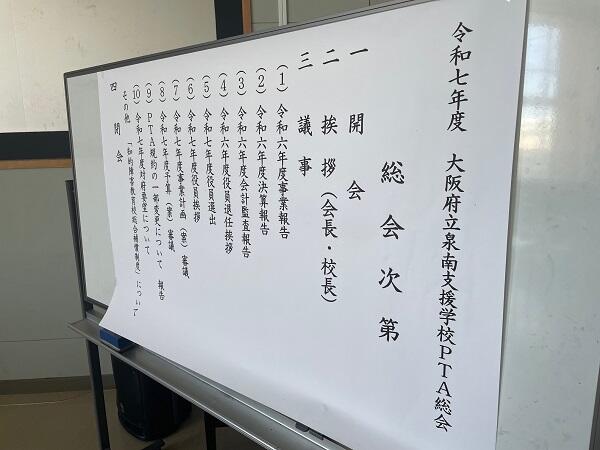 令和七年度 大阪府立泉南支援学校PTA総会
総会次第
一 開会
二 挨拶(会長・校長)
三 議事
(1) 令和六年度事業報告
(2) 令和六年度決算報告
(3) 令和六年度会計監査報告
(4) 令和六年度役員退任挨拶
(5) 令和七年度役員選出
(6) 令和七年度役員挨拶
(7) 令和七年度事業計画(案)審議
(8) 令和七年度予算(案)審議
(9) PTA規約の一部変更について 報告
(10) 令和七年度対府要望について
その他 「知的障害教育校総合補償制度」について
四 閉会